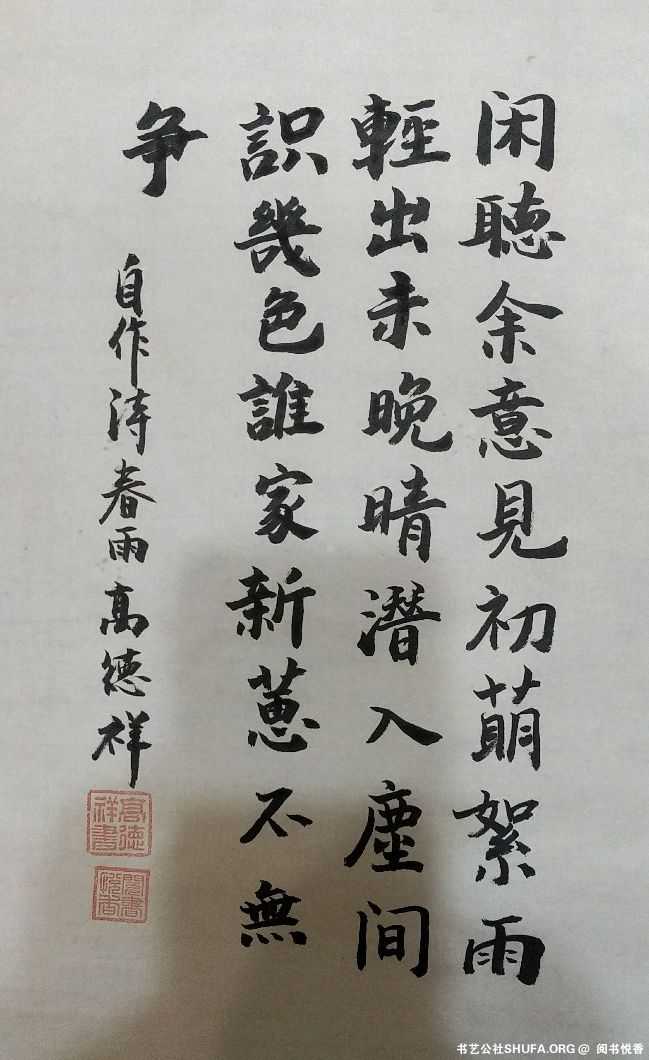 闲聽余意見初萠絮雨
輕出未晚晴潛入塵间
識幾色誰家新蔥不無
争
自作诗春雨高德祥
高德祥書
閱書悅香
书艺公社SHUFA.ORG @ 阅书悦香